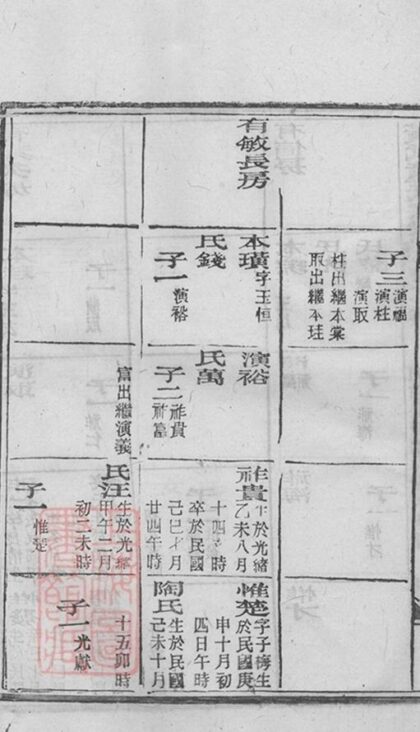 有敏長房
子三演福
演柱
演取
柱出繼本棠
取出繼本珪
本璜字玉恒
氏錢
子一演裕
演裕
氏萬
子二祚貴
祚富
富出繼演義
祚貴生於光緒
乙未八月
十四時
卒於民國
己巳月
廿四午時
氏汪生於光緒
甲午二月
初二未時
子一惟楚
惟楚字子梅生
於民國庚
申十月初
四日午時
陶氏生於民國
己未十月
十五卯時
子一光献